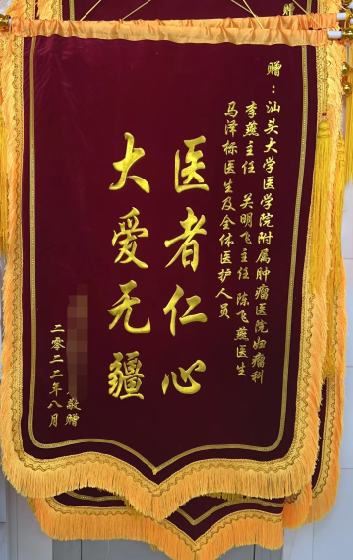 赠：汕头大学医学院附属肿瘤医院妇瘤科
李燕主任 关明飞主任 陈飞燕医生
马泽标医生及全体医护人员
医者仁心
大爱无疆
敬赠
二零二二年八月